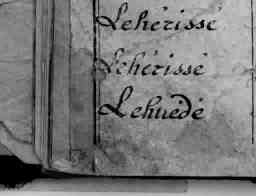 Lehérissé
Lehérissé
Lehuédé